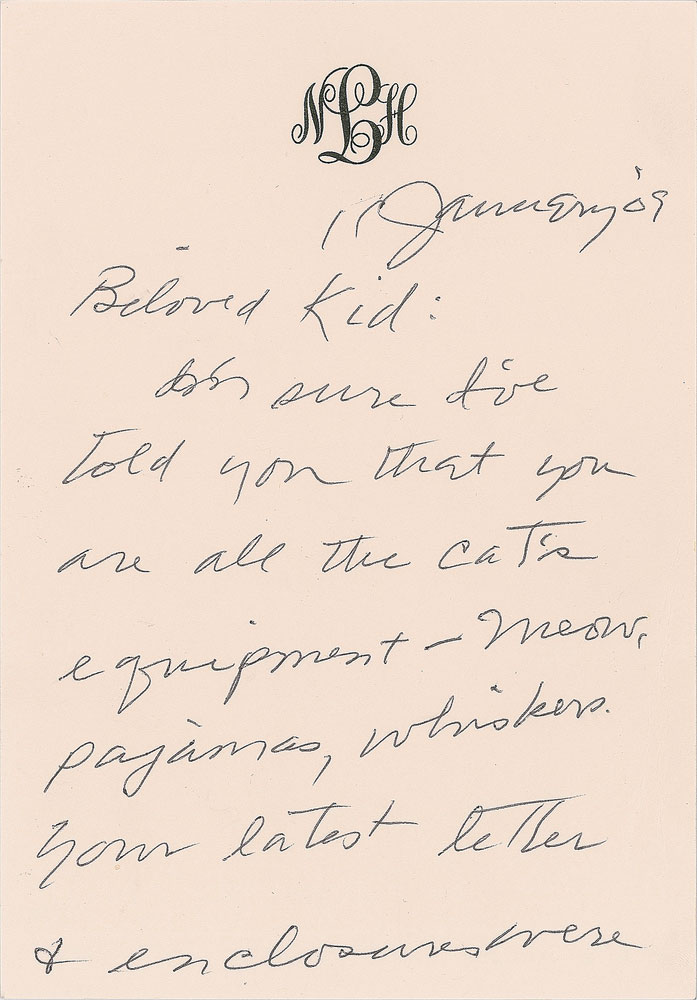 NLH
11 January '09
Beloved Kid:
I'm sure I've
told you that you
are all the cat's
equipment – Meow,
pajamas, whiskers.
Your latest letter
& enclosures were